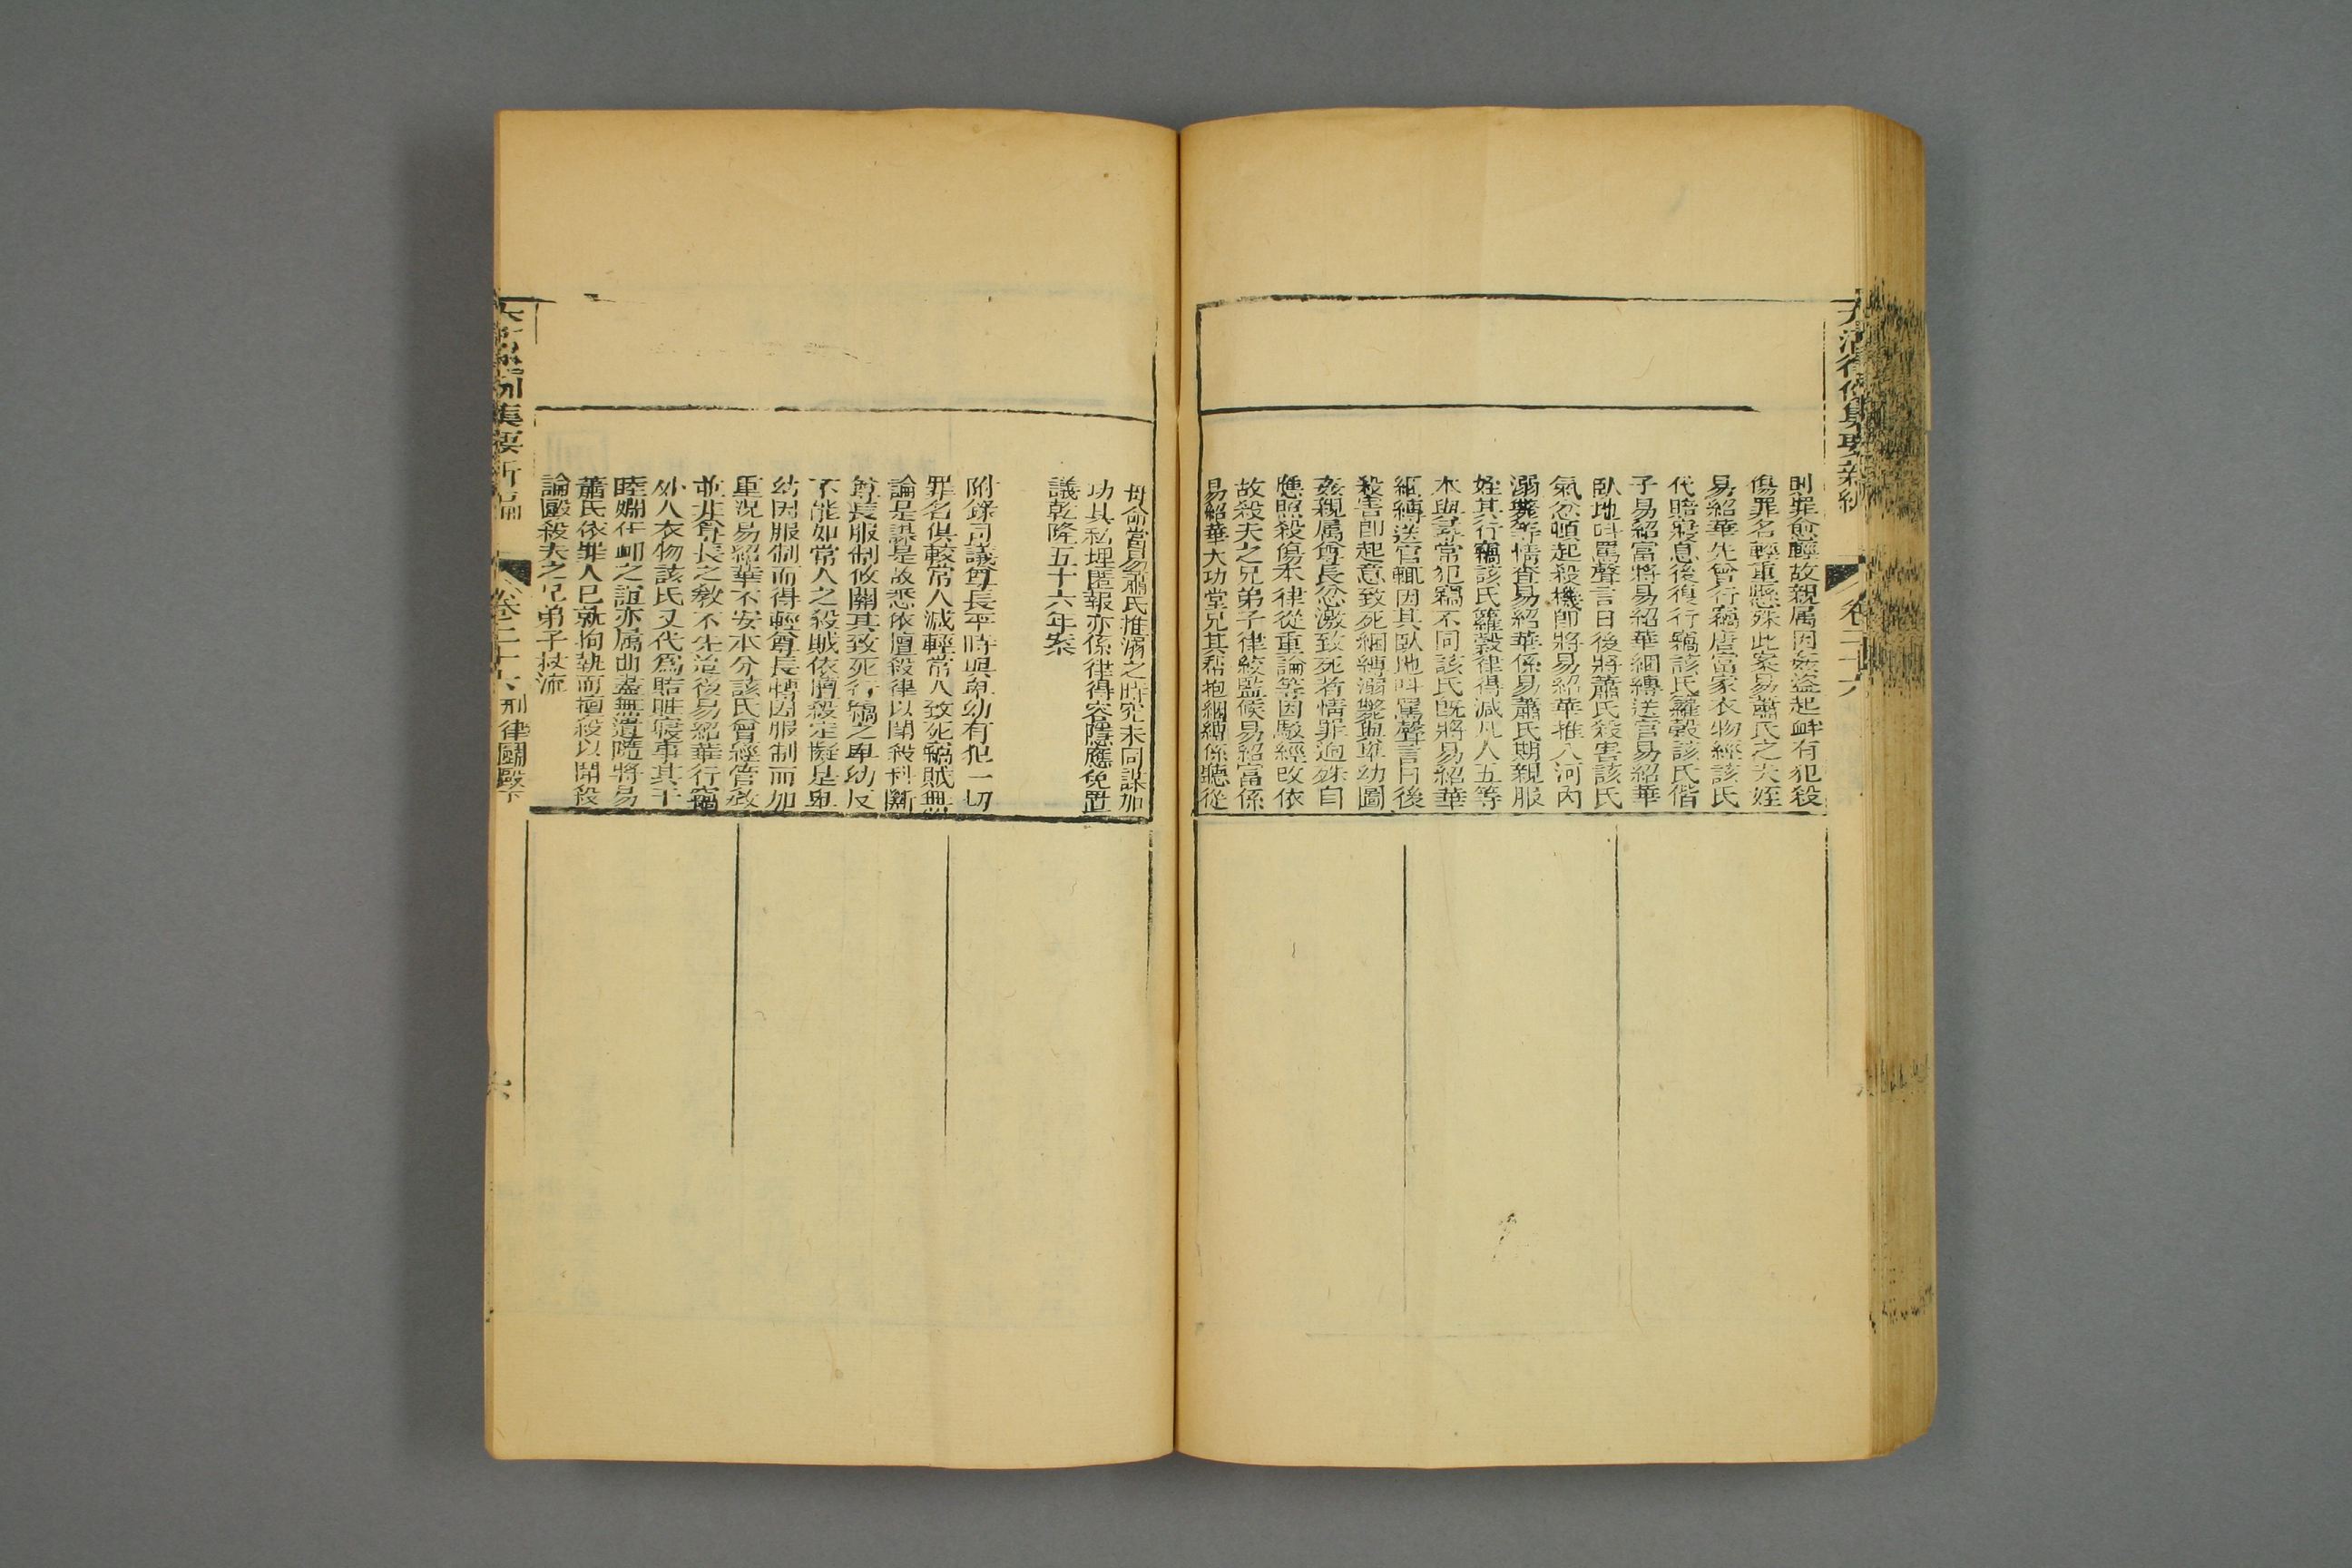 大清律例集要新編
卷二十六
則罪愈輕故親属因姦盜起衅有犯殺
傷罪名輕重懸殊此案易蕭氏之夫姪
易紹華先曾行竊唐富家衣物經該氏
代賠寢息後復行竊該氏籮穀該氏偕
子易紹富將易紹華綑縛送官易紹華
臥地呌罵聲言日後將蕭氏殺害該氏
氣忿頓起殺機卽將易紹華推入河內
溺斃等情查易紹華係易蕭氏期親服
姪其行竊該氏籮穀律得減凡人五等
本與尋常犯竊不同該氏旣將易紹華
綑縛送官輒因其臥地呌罵聲言日後
殺害卽起意致死綑縛溺斃與卑幼圖
姦親属尊長忿激致死者情罪逈殊自
應照殺傷本律從重論等因駁經改依
故殺夫之兄弟子律絞監候易紹富係
易紹華大功堂兄其帮抱綑縛係聽從
母命當易蕭氏推溺之時究未同謀加
功其私埋匿報亦係律得容隱應免置
議乾隆五十六年案
附錄司議尊長平時與卑幼有犯一切
罪名俱較常人減輕常人致死竊賊無
論是謀是故悉依擅殺律以鬥殺科斷
尊長服制攸關其致死行竊之卑幼反
不能如常人之殺賊依擅殺定擬是卑
幼因服制而得輕尊長情因服制而加
重況易紹華不安本分該氏曾經管敎
並非尊長之敎不先迨後易紹華行竊
外人衣物該氏又代爲賠賍寢事其于
睦婣任卹之誼亦属曲盡無遺隨將易
蕭氏依罪人已就拘執而擅殺以鬥殺
論毆殺夫之兄弟子杖流
集要新編
卷二十六刑律鬬毆下
六